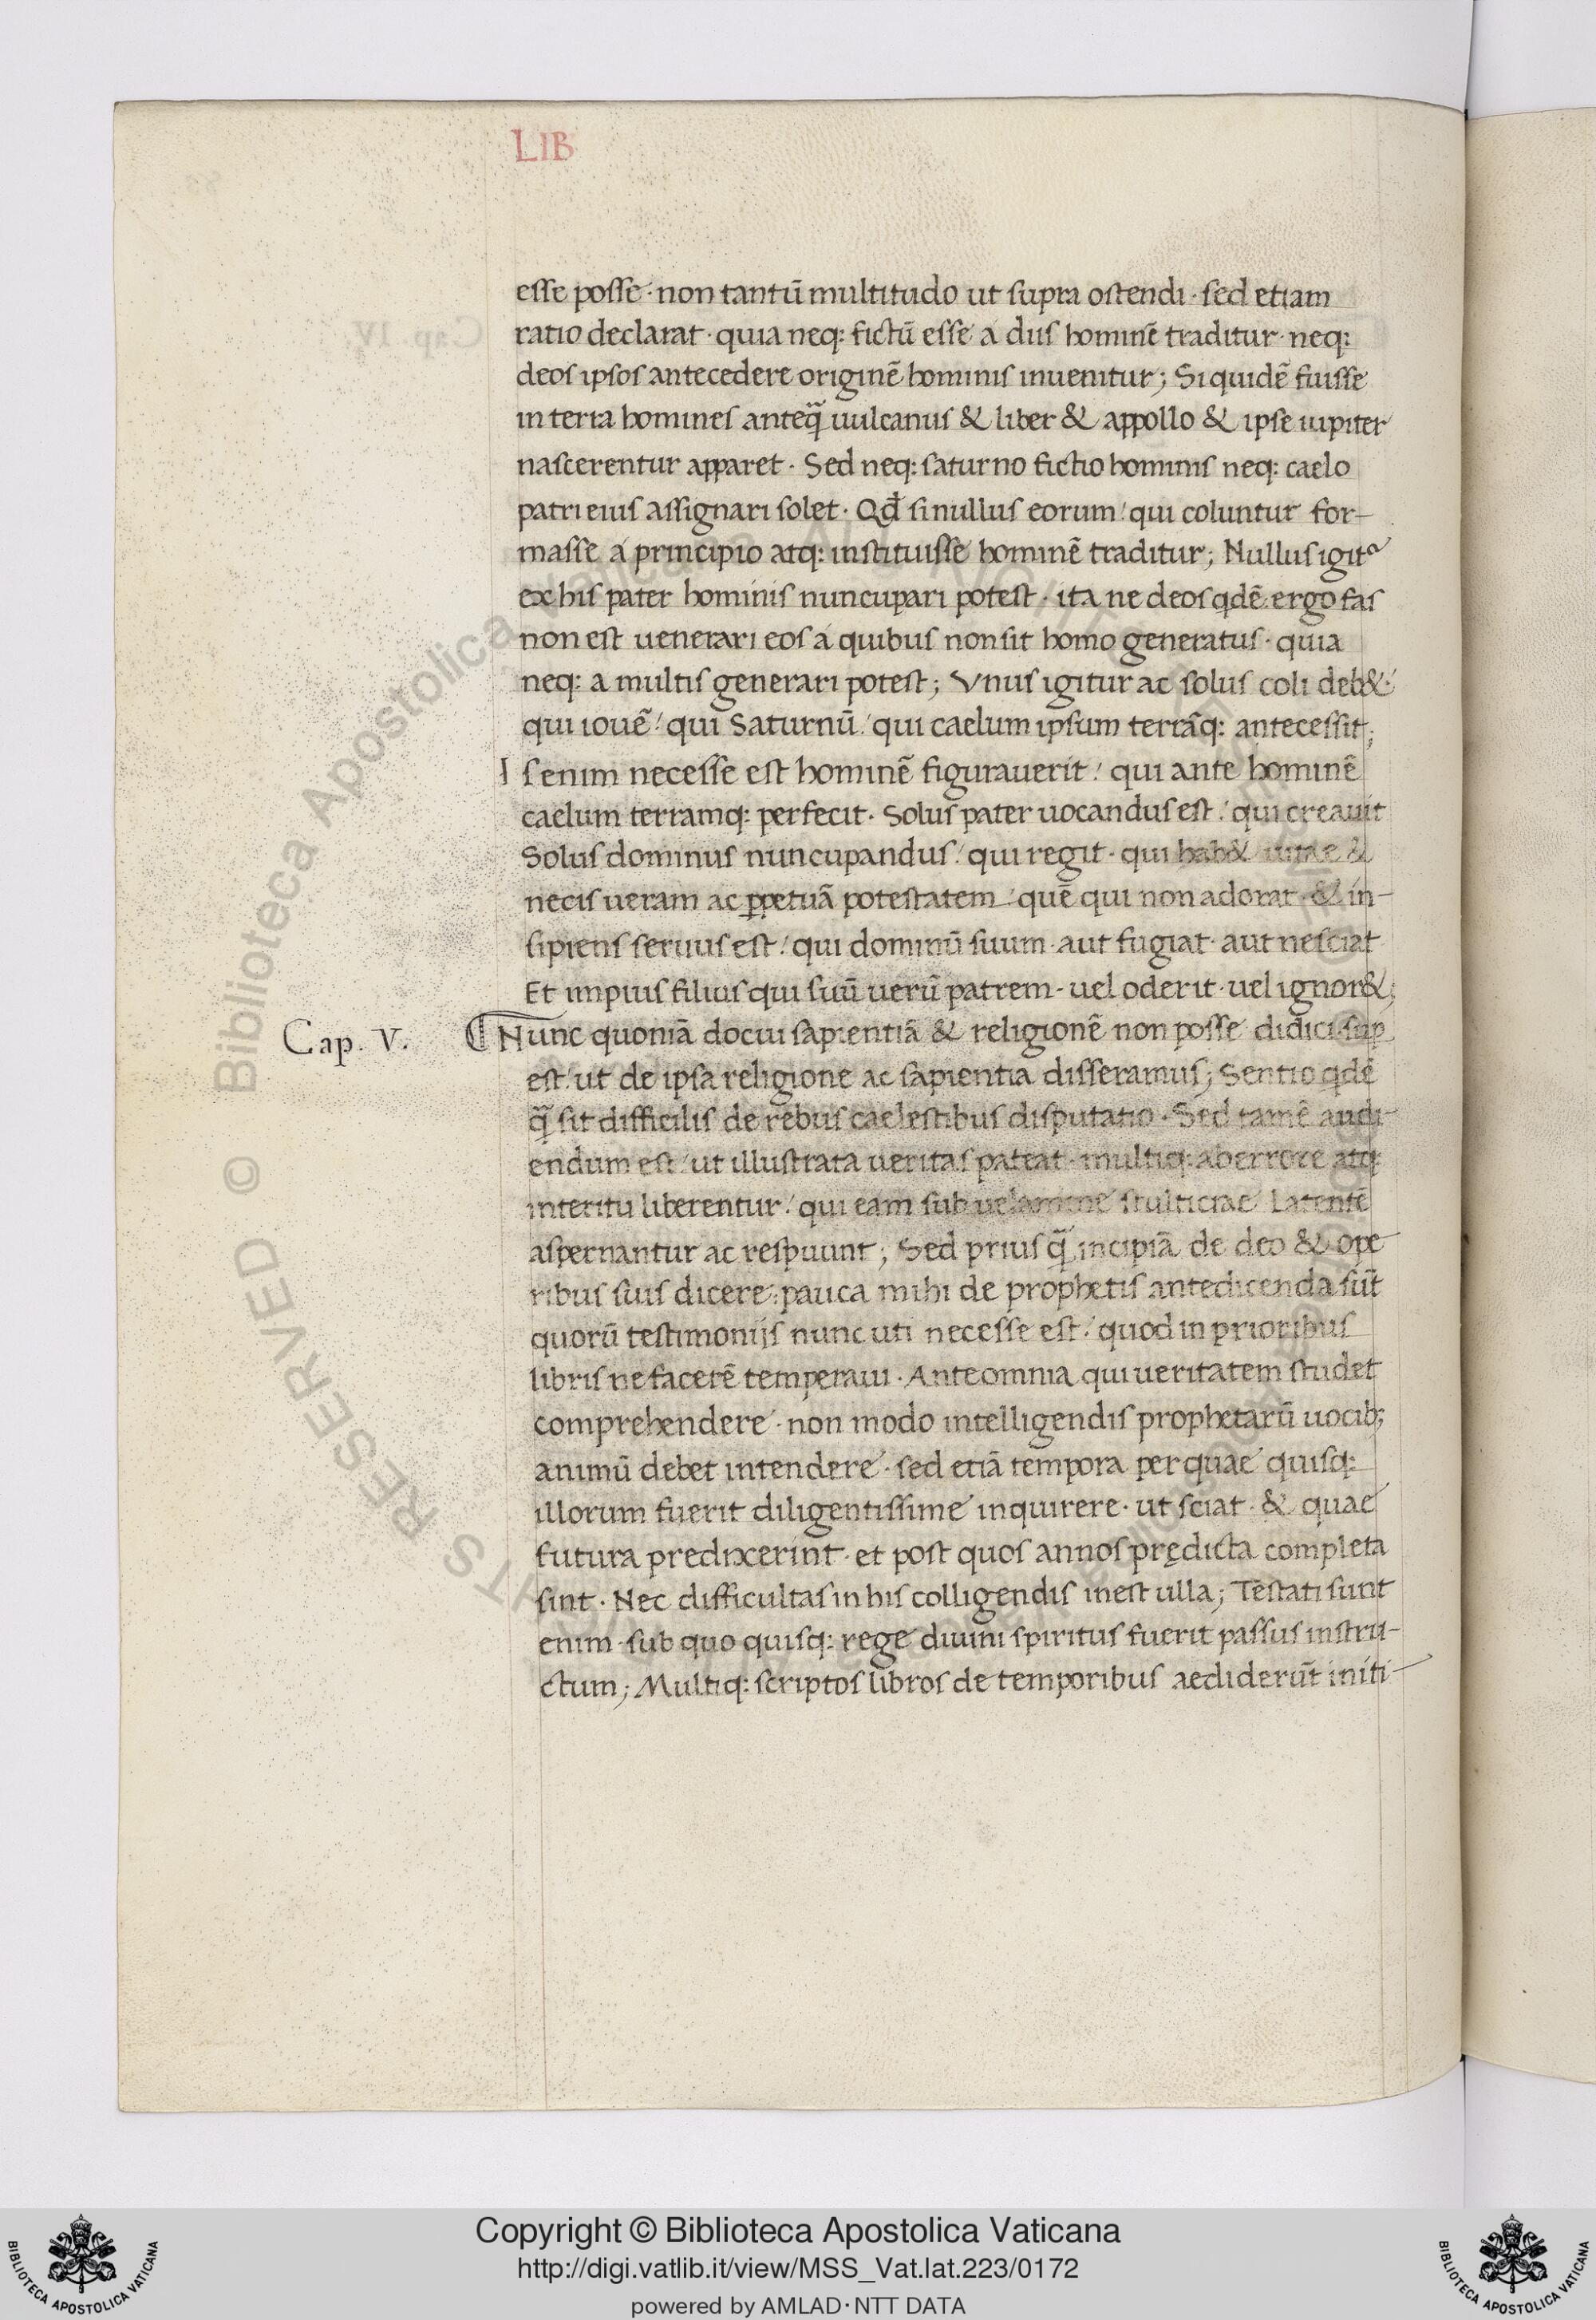 LIB
esse posse · non tantū multitudo ut supra ostendi · sed etiam
ratio declarat · quia neq: fictū esse a diis hominē traditur · neq:
deos ipsos antecedere originē hominis inuenitur; Siquidē fuisse
in terra homines anteq̄ uulcanus & liber & appollo & ipse iupiter
nascerentur apparet · Sed neq: saturno fictio hominis neq: caelo
patri eius assignari solet · Qd̄ si nullus eorum / qui coluntur for-
masse a principio atq: instituisse hominē traditur; Nullus igit᷑
ex his pater hominis nuncupari potest · ita ne deos qdē. ergo fas
non est uenerari eos a quibus non sit homo generatus · quia
neq: a multis generari potest; Vnus igitur ac solus coli deb&·
qui iouē / qui Saturnū / qui caelum ipsum terrāq: antecessit;
Is enim necesse est hominē figurauerit / qui ante hominē
caelum terramq: perfecit · Solus pater uocandus est / qui creauit
Solus dominus nuncupandus / qui regit · qui hab& uitae &
necis ueram ac ꝑpetuā potestatem / quē qui non adorat · & in-
sipiens seruus est / qui dominū suum · aut fugiat · aut nesciat
Et impius filius qui suū uerū patrem · uel oderit · uel ignor&;
Cap. V.
Nunc quoniā docui sapientiā & religionē non posse didici · sup
est / ut de ipsa religione ac sapientia disseramus; Sentio qdē
q̄ sit difficilis de rebus caelestibus disputatio · Sed tamē audi-
endum est / ut illustrata ueritas pateat · multiq: ab errore atq:
interitu liberentur / qui eam sub uelamine stulticiae latentē
aspernantur ac respuunt; Sed prius q̄ incipiā de deo & ope
ribus suis dicere: pauca mihi de prophetis antedicenda sūt
quorū testimonijs nunc uti necesse est / quod in prioribus
libris ne facerē temperaui · Ante omnia qui ueritatem studet
comprehendere · non modo intelligendis prophetarū uocib;
animū debet intendere · sed etiā tempora per quae quisq:
illorum fuerit diligentissime inquirere · ut sciat · & quae
futura predixerint · et post quos annos prędicta completa
sint · Nec difficultas in his colligendis inest ulla; Testati sunt
enim · sub quo quisq: rege diuini spiritus fuerit passus instru-
ctum; Multiq: scriptos libros de temporibus aediderūt initi-
Copyright © Biblioteca Apostolica Vaticana
http://digi.vatlib.it/view/MSS_Vat.lat.223/0172
powered by AMLAD · NTT DATA
BIBLIOTECA APOSTOLICA VATICANA
BIBLIOTECA APOSTOLICA VATICANA